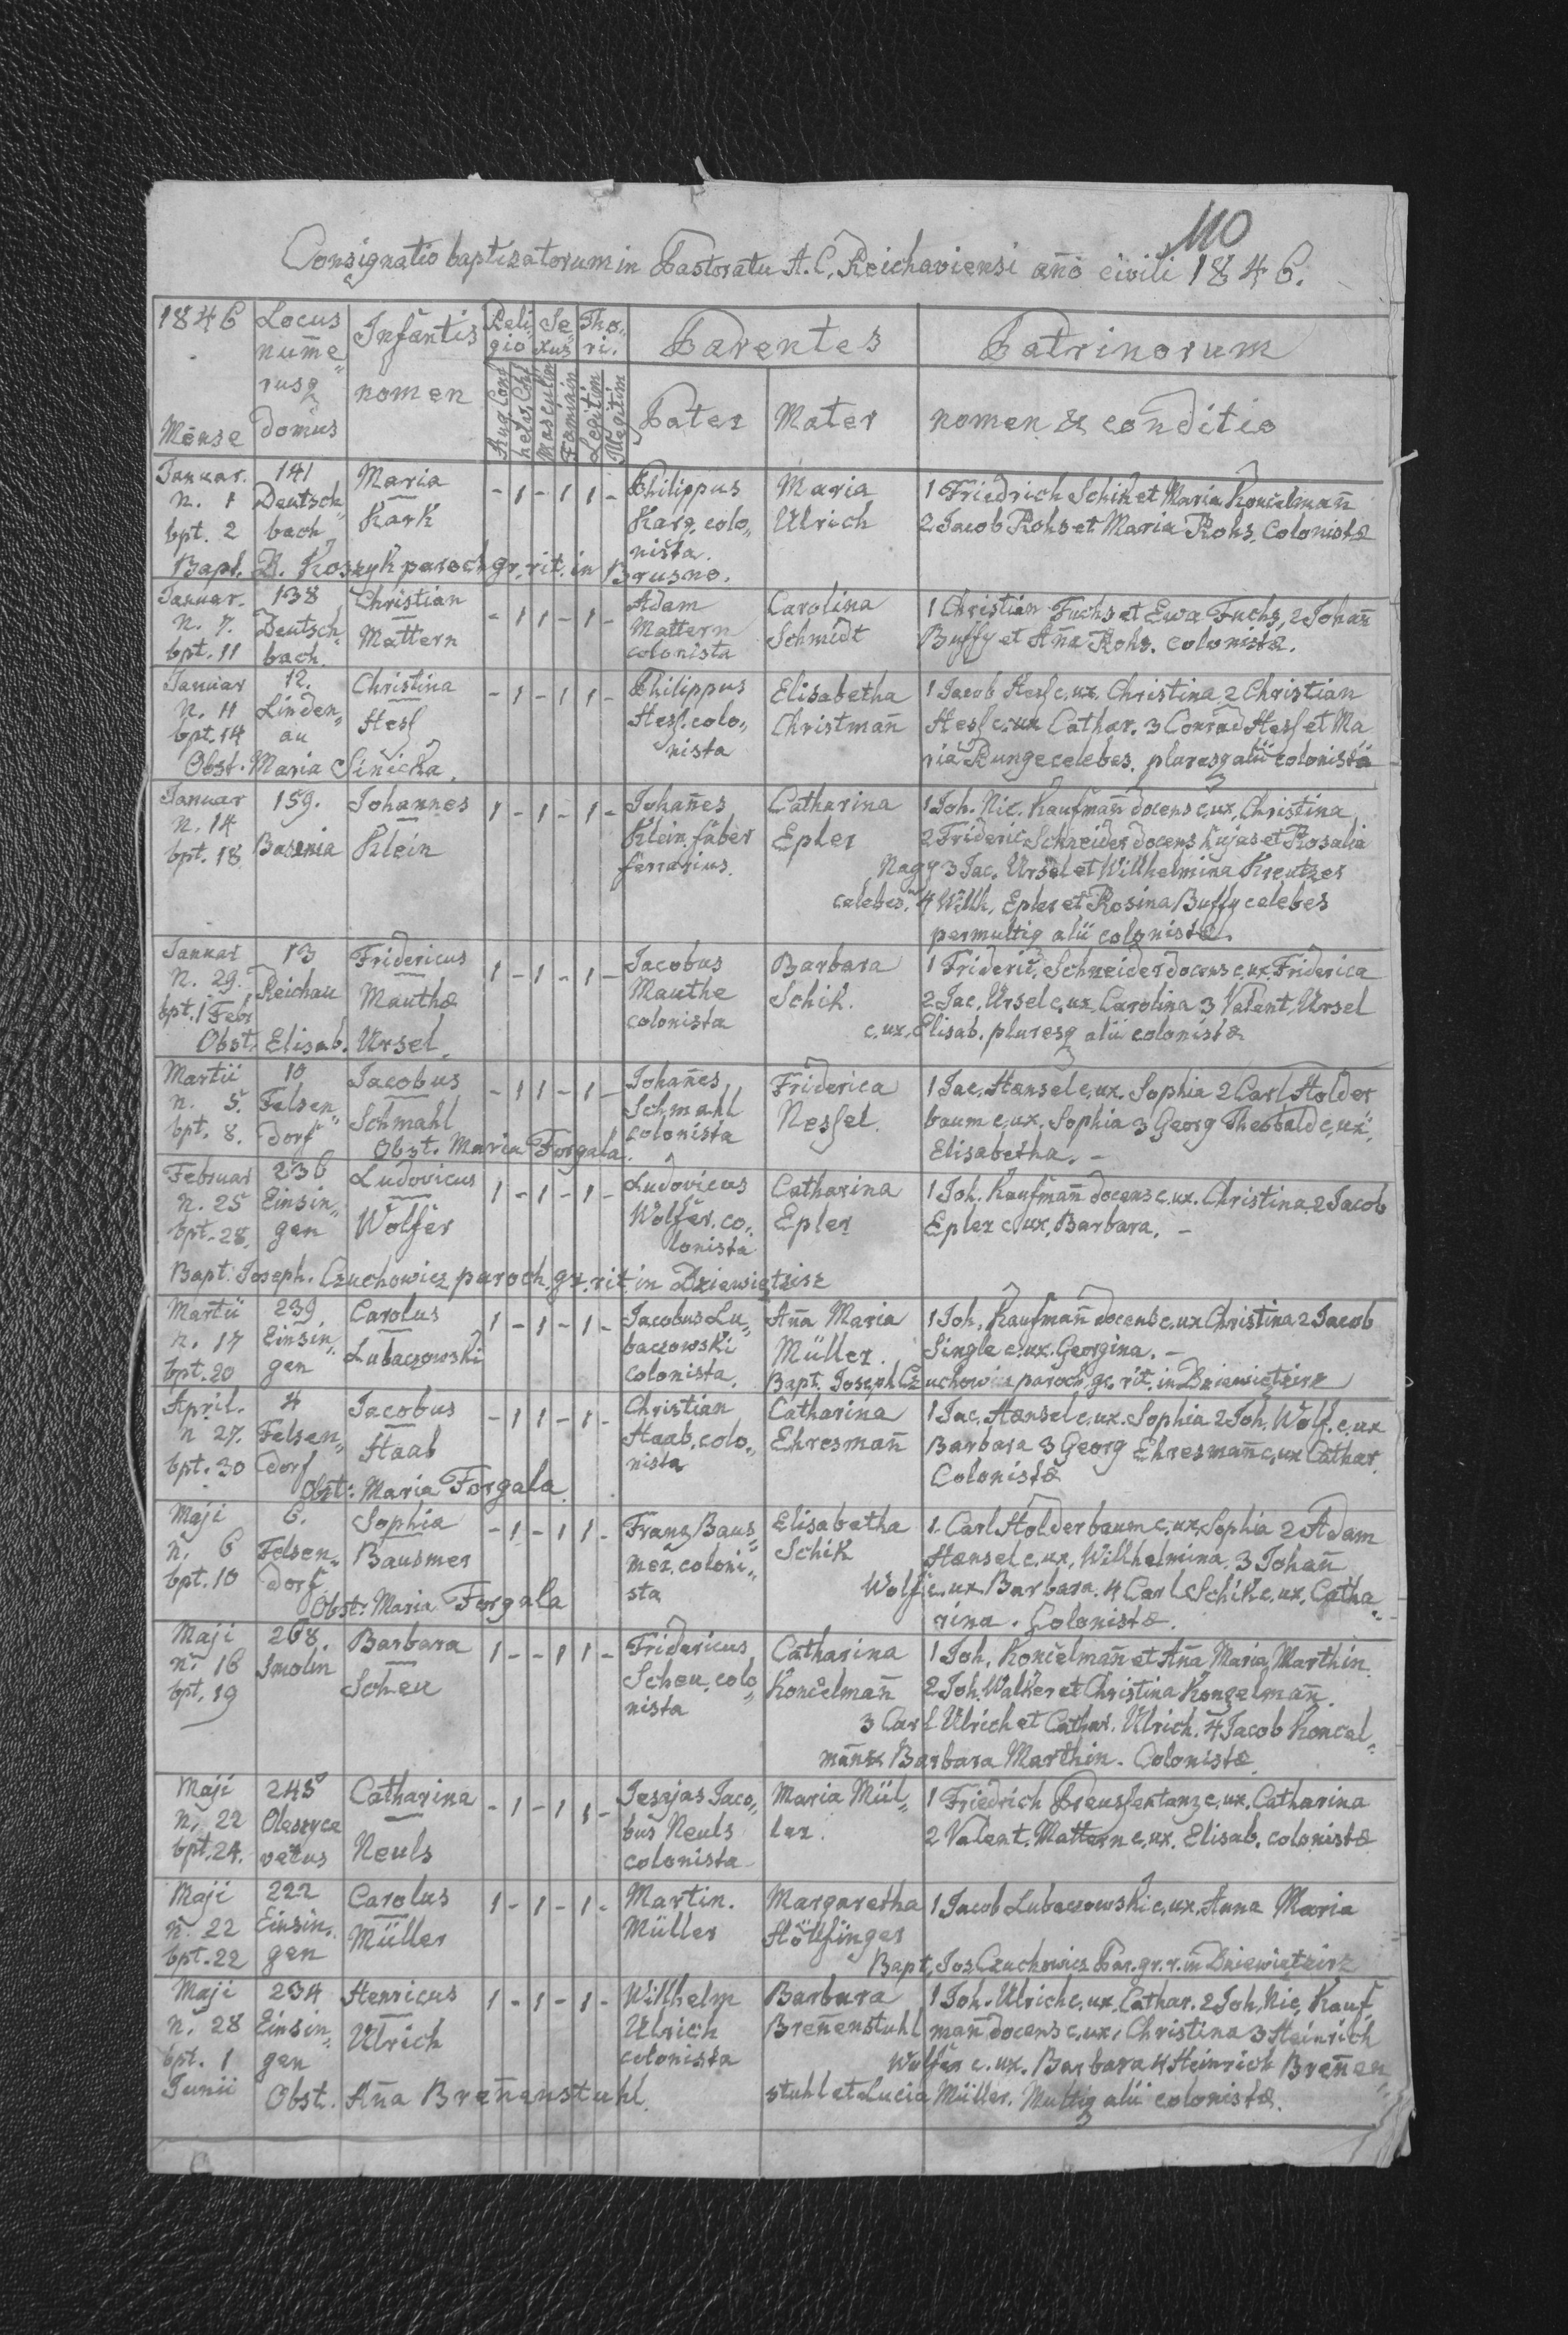 110
Consignatio baptizatorum in Pastoratu A. C. Reichaviensi año civili 1846.
1846 Locus Infantis Reli Se Tho Parentes Patrinorum
nume gio xus ri.
rusq nomen Pater Mater nomen & conditio
Mense domus Aug Conf Helv. Conf Masculin Faminin Legitim Illegitim
Januar. 141 Maria - 1 - 1 1 - Philippus Maria 1 Friedrich Schik et Maria Koncelmañ
n. 1 Deutsch„ Kark Karg. colo„ Ulrich 2 Jacob Rohs et Maria Rohs. Colonistæ
bpt. 2 bach nista.
Bapt. B. Koszyk paroch gr. rit. in Brusno.
Januar. 138 Christian - 1 1 - 1 - Adam Carolina 1 Christian Fuchs et Ewa Fuchs, 2 Johañ
n. 7. Deutsch„ Mattern Mattern Schmidt Buffy et Aña Rohs. colonistæ.
bpt. 11 bach. colonista
Januar 12. Christina - 1 - 1 1 - Philippus Elisabetha 1 Jacob Hess c. ux. Christina 2 Christian
n. 11 Linden„ Hess Hess. colo„ Christmañ Hess c. ux Cathar. 3 Conrad Hess et Ma
bpt. 14 au nista ria Runge celebes. pluresq alii colonistæ
Obst. Maria Sinicka.
Januar 159. Johannes 1 - 1 - 1 - Johañes Catharina 1 Joh. Nic. Kaufmañ docens c. ux. Christina
n. 14 Basznia Klein Klein. faber Epler 2 Frideric Schneider docens hujas et Rosalia
bpt. 18 ferrarius. Nagy 3 Jac. Ursel et Willhelmina Kreutzer
celebes. 4 Willh. Epler et Rosina Buffy celebes
permultiq alii colonistæ.
Januar 13 Fridericus 1 - 1 - 1 - Jacobus Barbara 1 Frideric. Schneider docens c. ux Friderica
N. 29. Reichau Mauthæ Mauthe Schik. 2 Jac. Ursel c. ux. Carolina 3 Valent. Ursel
bpt. 1 Febr colonista c. ux. Elisab. pluresq alii colonistæ
Obst. Elisab. Ursel.
Martii 10 Jacobus - 1 1 - 1 - Johañes Friderica 1 Jac. Hænsel c. ux. Sophia 2 Carl Holder
n. 5. Felsen„ Schmahl Schmahl Nessel. baum c. ux. Sophia 3 Georg Theobald c. ux.
bpt. 8. dorf colonista Elisabetha. -
Obst. Maria Forgala.
Februar 236 Ludovicus 1 - 1 - 1 - Ludovicus Catharina 1 Joh. Kaufmañ docens c. ux. Christina. 2 Jacob
n. 25 Einsin„ Wolfer Wolfer. co„ Epler Epler c. ux. Barbara. -
bpt. 28. gen lonista
Bapt. Joseph. Czuchowicz paroch. gr. rit. in Dziewiętzirz
Martii 239 Carolus 1 - 1 - 1 - Jacobus Lu„ Aña Maria 1 Joh. Kaufmañ docens c. ux Christina 2 Jacob
n. 17 Einsin„ Lubaczowski baczowski Müller. Single c. ux. Georgina. -
bpt. 20 gen colonista. Bapt. Joseph Czuchowicz paroch. gr. rit. in Dziewiętzirz
April. 4 Jacobus - 1 1 - 1 - Christian Catharina 1 Jac. Hænsel c. ux. Sophia 2 Joh. Wolf. c. ux
n 27. Felsen„ Staab Staab. colo„ Ehresmañ Barbara 3 Georg Ehresmañ c. ux Cathar.
bpt. 30 dorf nista Colonistæ
Obst: Maria Forgala.
Maji 6. Sophia - 1 - 1 1 - Franz Baus„ Elisabetha 1. Carl Holderbaum c. ux. Sophia 2 Adam
n. 6 Felsen„ Bausmer mer. coloni„ Schik Hænsel c. ux. Willhelmina. 3 Johañ
bpt. 10 dorf. sta Wolf c. ux Barbara. 4 Carl Schik c. ux. Catha„
Obst: Maria Forgala rina. Colonistæ.
Maji 268. Barbara 1 - - 1 1 - Fridericus Catharina 1 Joh. Koncelmañ et Aña Maria Marthin.
n. 16 Smolin Scheu Scheu. colo„ Koncelmañ 2 Joh. Walker et Christina Konzelmañ.
bpt. 19 nista 3 Carl Ulrich et Cathar. Ulrich. 4 Jacob Koncel„
mañ & Barbara Marthin. Colonistæ.
Maji 245 Catharina - 1 - 1 1 - Jesajas Jaco„ Maria Mül„ 1 Friedrich Preussentanz c. ux. Catharina
n. 22 Oleszyce Neuls bus Neuls ler. 2 Valent. Mattern c. ux. Elisab. colonistæ
bpt. 24. vetus colonista
Maji 222 Carolus 1 - 1 - 1 - Martin. Margaretha 1 Jacob Lubaczowski c. ux. Anna Maria
n. 22 Einsin„ Müller Müller Höllfinger
bpt. 22 gen Bapt. Jos. Czuchowicz Par. gr. r. in Dziewiętzirz
Maji 234 Henricus 1 - 1 - 1 - Willhelm Barbara 1 Joh. Ulrich c. ux. Cathar. 2 Joh. Nic. Kauf„
n. 28 Einsin„ Ulrich Ulrich Breñenstuhl mañ docens c. ux. Christina 3 Heinrich
bpt. 1 gen colonista Wolfer c. ux. Barbara 4 Heinrich Breñen„
Junii Obst. Aña Breñenstuhl. stuhl et Lucia Müller. Multiq alii colonistæ.